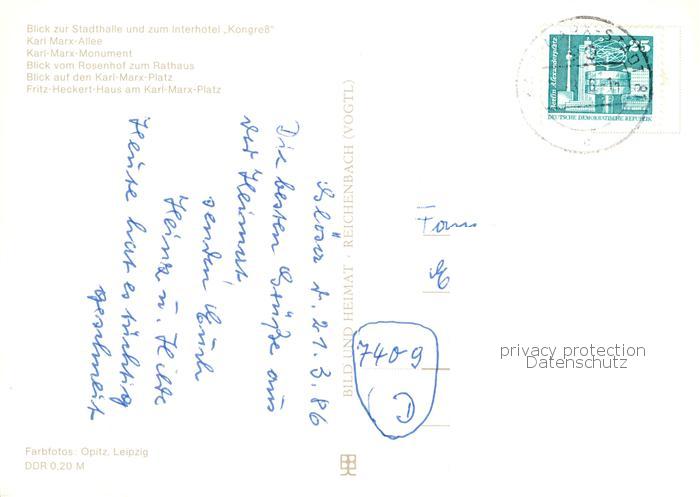 Blick zur Stadthalle und zum Interhotel „Kongreß“
Karl Marx-Allee
Karl-Marx-Monument
Blick vom Rosenhof zum Rathaus
Blick auf den Karl-Marx-Platz
Fritz-Heckert-Haus am Karl-Marx-Platz
Glösa d. 21.3.86
Die besten Grüße aus
der Heimat,
senden Euch
Heinz u. Hilde
Heute hat es tüchtig
geschneit
BILD UND HEIMAT · REICHENBACH (VOGTL)
25
Berlin, Alexanderplatz
DEUTSCHE DEMOKRATISCHE REPUBLIK
Fam
E
7409
D
privacy protection
Datenschutz
Farbfotos: Opitz, Leipzig
DDR 0,20 M